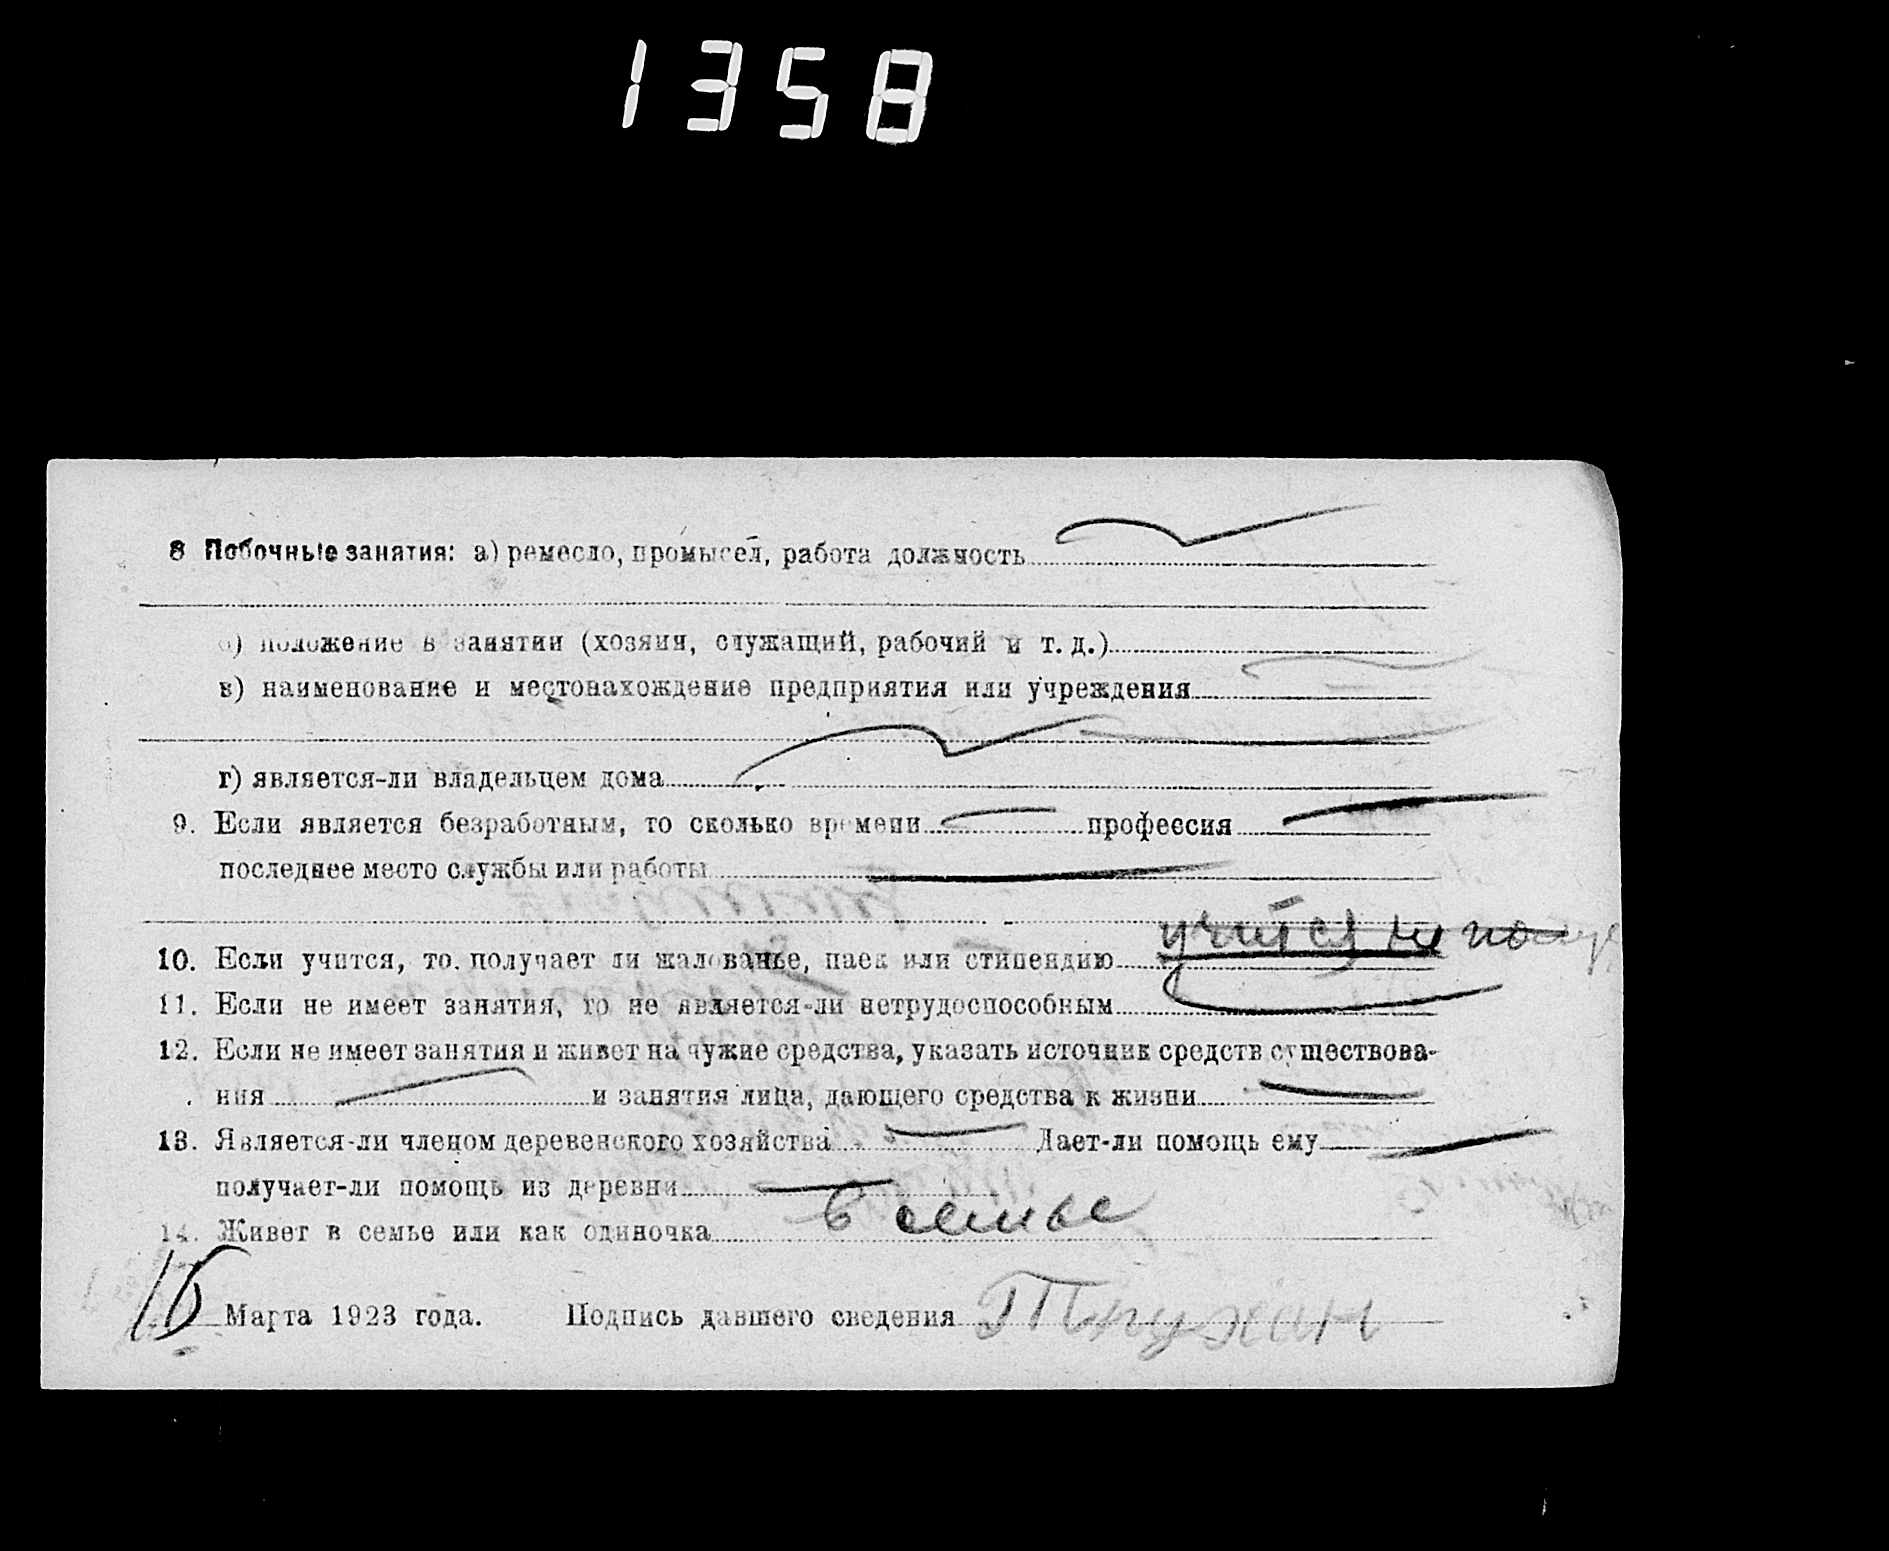 1358
8 Побочные занятия: а) ремесло, промысел, работа должность
б) положение в занятии (хозяин, служащий, рабочий и т. д.)
в) наименование и местонахождение предприятия или учреждения
г) является-ли владельцем дома
9. Если является безработным, то сколько времени профессия
последнее место службы или работы
учится не
10. Если учится, то. получает ли жалованье, паек или стипендию
11. Если не имеет занятия, то не является-ли нетрудоспособным
12. Если не имеет занятия и живет на чужие средства, указать источник средств существова-
ния и занятия лица, дающего средства к жизни
13. Является-ли членом деревенского хозяйства Дает-ли помощь ему
получает-ли помощь из деревни
14. Живет в семье или как одиночка в семье
15 Марта 1923 года. Подпись давшего сведения